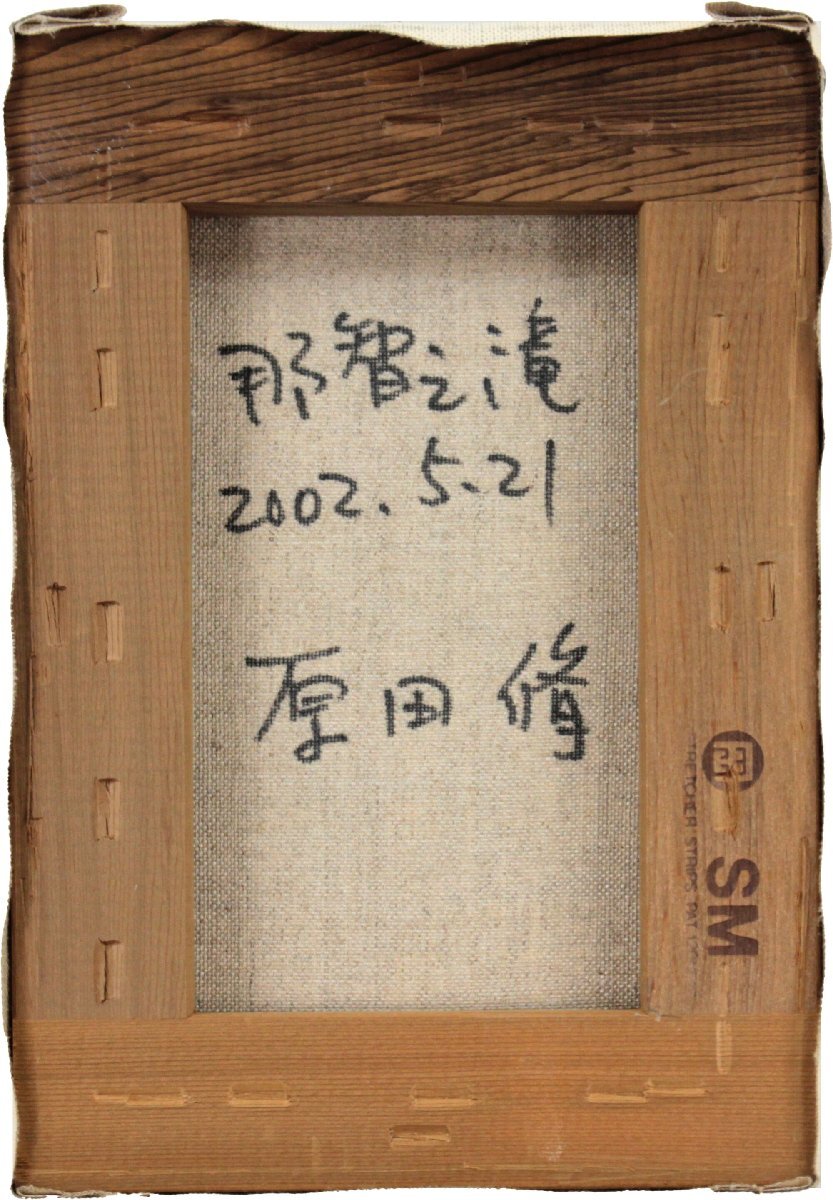 那智之滝
2002.5.21
原田 脩
SM
STRETCHER STRIPS PAT